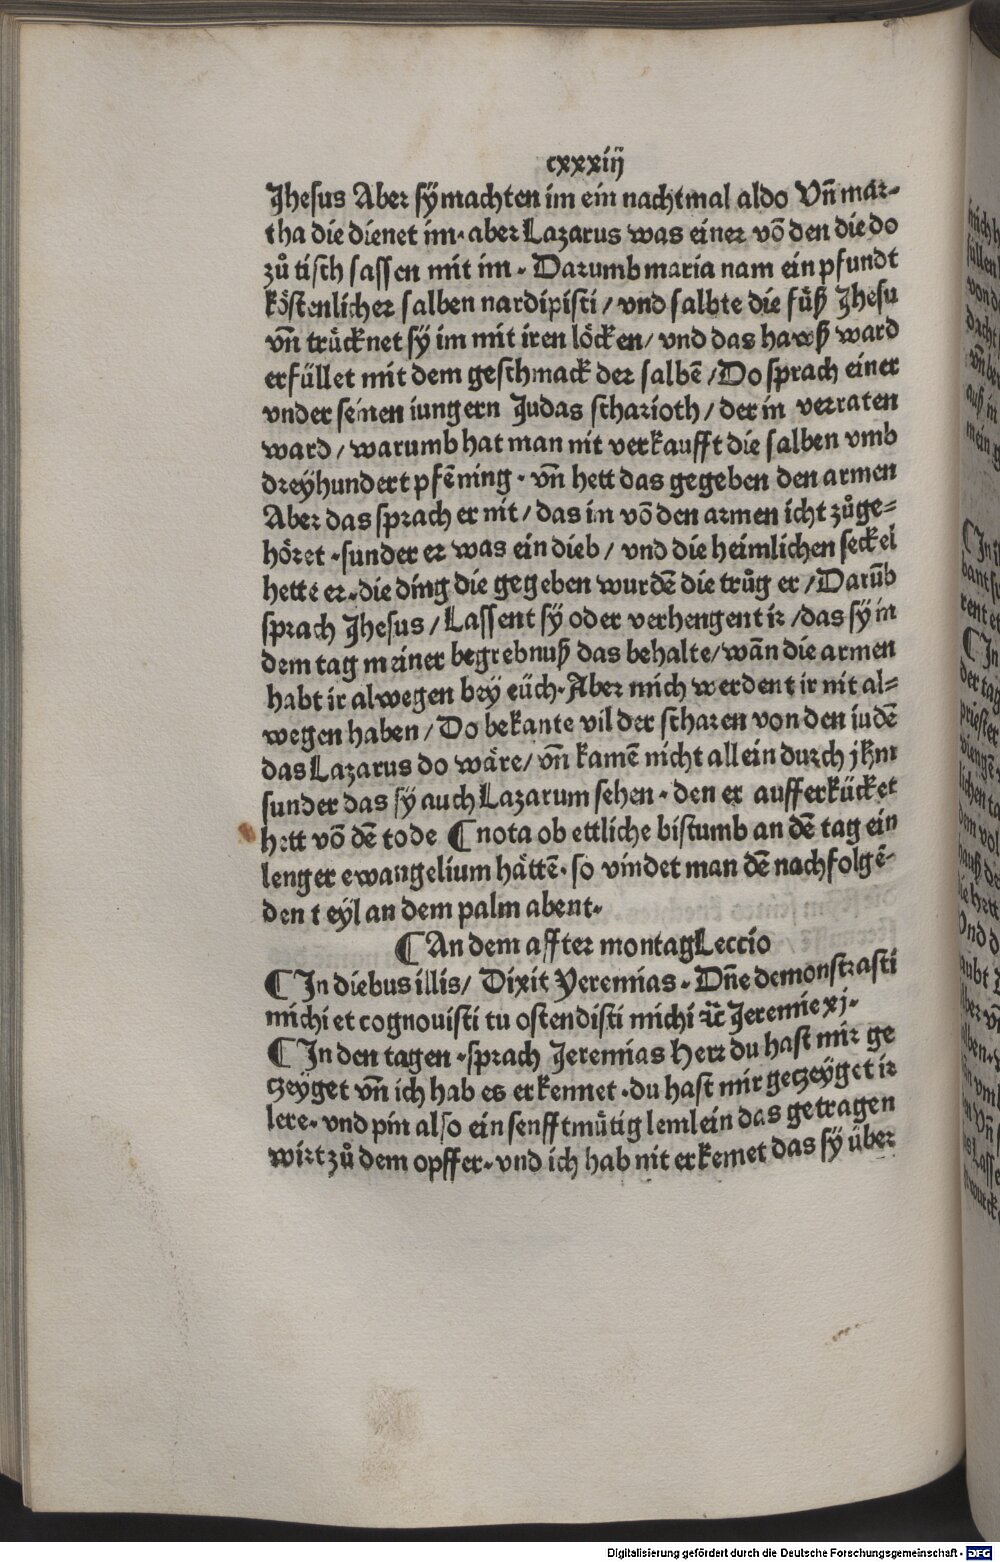 cxxxiij
Jhesus Aber sÿ machten im ein nachtmal aldo Vn̄ mar-
tha die dienet im. aber Lazarus was einer vō den die do
zů tisch sassen mit im. Darumb maria nam ein pfundt
köstenlicher salben nardipisti / vnd salbte die füß Jhesu
vn̄ trücknet sÿ im mit iren löcken / vnd das hawß ward
erfüllet mit dem geschmack der salbē / Do sprach einer
vnder seinen iungern Judas scharioth / der in verraten
ward / warumb hat man nit verkaufft die salben vmb
dreÿhundert pfēning. vn̄ hett das gegeben den armen
Aber das sprach er nit / das in vō den armen icht zůge=
höret. sunder er was ein dieb / vnd die heimlichen seckel
hette er. die ding die gegeben wurdē die trůg er / Darūb
sprach Jhesus / Lassent sÿ oder verhengent ir / das sÿ in
dem tag meiner begrebnuß das behalte / wān die armen
habt ir alwegen beÿ eüch. Aber mich werdent ir nit al=
wegen haben / Do bekante vil der scharen von den iudē
das Lazarus do wäre / vn̄ kamē nicht allein durch jhm̄
sunder das sÿ auch Lazarum sehen. den er aufferkücket
hett vō dē tode ¶ nota ob ettliche bistumb an dē tag ein
lenger ewangelium hättē. so vindet man dē nachfolgē-
den teÿl an dem palm abent.
¶ An dem affter montag Leccio
¶ In diebus illis / Dixit Yeremias. Dn̄e demonstrasti
michi et cognouisti tu ostendisti michi ⁊c̄ Jeremie xj.
¶ In den tagen. sprach Jeremias Herr du hast mir ge
czeÿget vn̄ ich hab es erkennet. du hast mir geczeÿget ir
lere. vnd pin also ein senfftmütig lemlein das getragen
wirt zů dem opffer. vnd ich hab nit erkemet das sÿ über
Digitalisierung gefördert durch die Deutsche Forschungsgemeinschaft - DFG